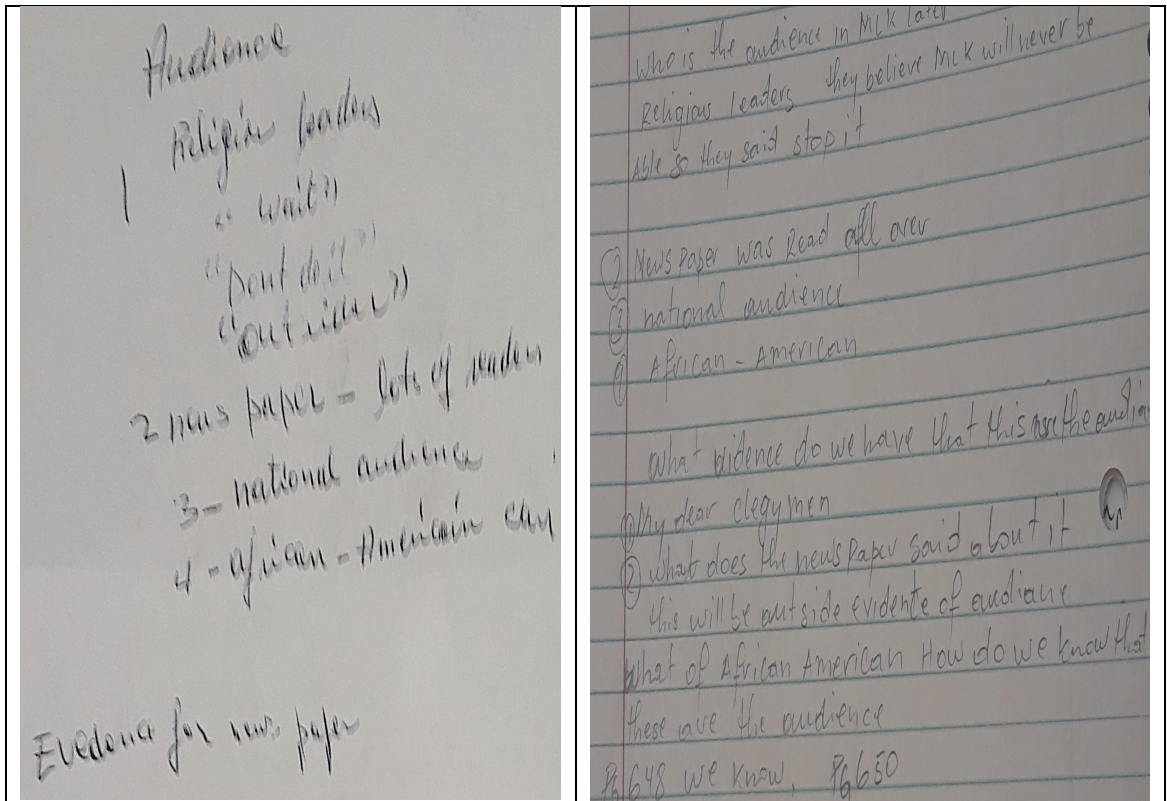 Audience
Religion leaders
1
"wait"
"Dont do it"
"outsider"
2 news paper - lots of readers
3 - national audience
4 - african - American
Evedence for news paper
who is the audience in MLK later
Religious leaders they believe MLK will never be
Able so they said stop it
② News paper was Read all over
③ national audience
④ African - American
what evidence do we have that this the audia
① My dear clegymen
② What does the news paper said about it
this will be out side evidente of audiane
What of African American How do we know that
these are the audience
Pg 648 we know, Pg 650